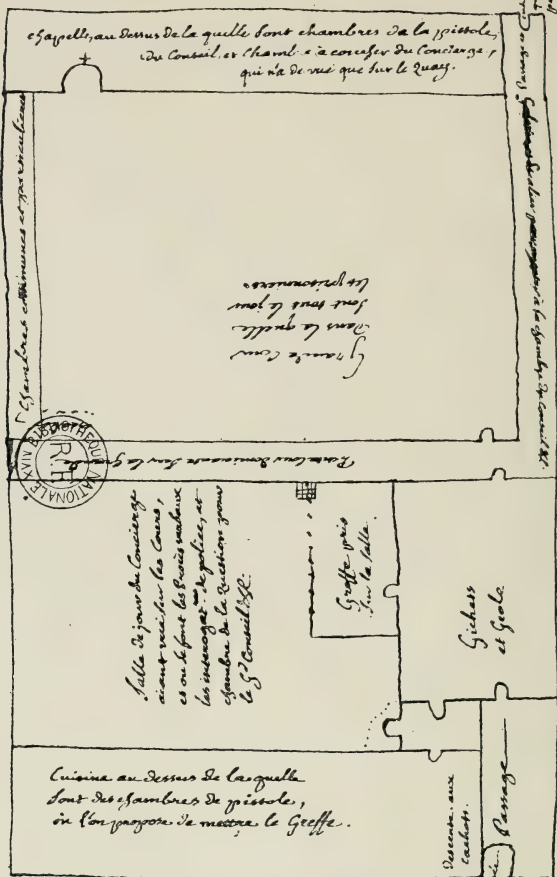 chapelle, au dessus de la quelle sont chambres de la pistole,
du Conseil, et Chamb. e a coucher du Concierge,
qui n'a de vüe que sur le Quay.
Chambres communes et particulieres
Grande Cour
Dans la quelle
sont tout le jour
les prisonniers
à la chambre du Conseil
sur la
BIBLIOTHEQUE NATIONALE XXIV
R.F.
Salle de jour du Concierge
aiant vüe sur les Cours,
et ou se font les procès verbaux
les interrogat. de police, et
chambre de la question pour
le G.d Conseil &c.
Greffe pris
sur la salle.
Gichets
et Geole
Cuisine au dessus de laquelle
sont des chambres de pistole,
ou l'on propose de mettre le Greffe.
Descente aux
cachots.
Passage